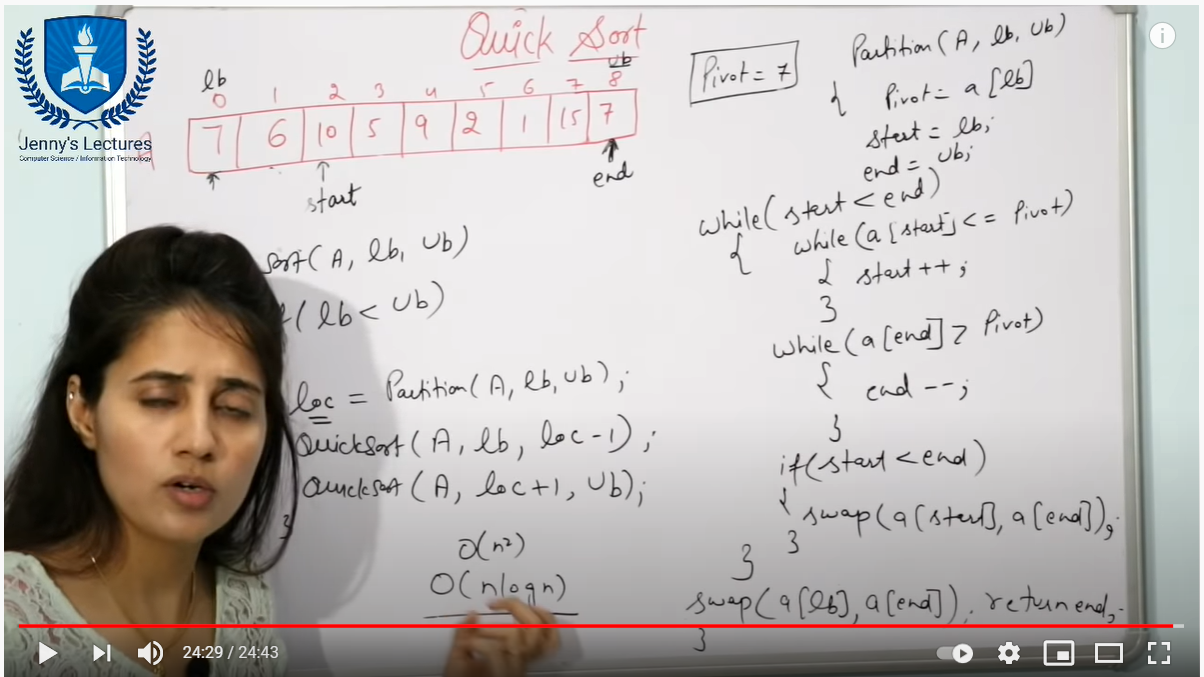 Jenny's Lectures
Computer Science / Information Technology
Quick Sort
lb
ub
0 1 2 3 4 5 6 7 8
A
7 6 10 5 9 2 1 15 7
start
end
Pivot = 7
sort( A, lb, ub)
( lb < ub)
loc = Partition( A, lb, ub) ;
QuickSort( A, lb, loc-1) ;
QuickSort( A, loc+1, ub);
}
O(n²)
O(nlogn)
Partition( A, lb, ub)
{ Pivot = a[lb]
start = lb;
end = ub;
while( start < end)
{ while( a[start] <= Pivot)
{ start++ ;
}
while( a[end] > Pivot)
{ end -- ;
}
if( start < end)
{ swap( a[start], a[end]);
}
}
swap( a[lb], a[end]). return end;
}
24:29 / 24:43